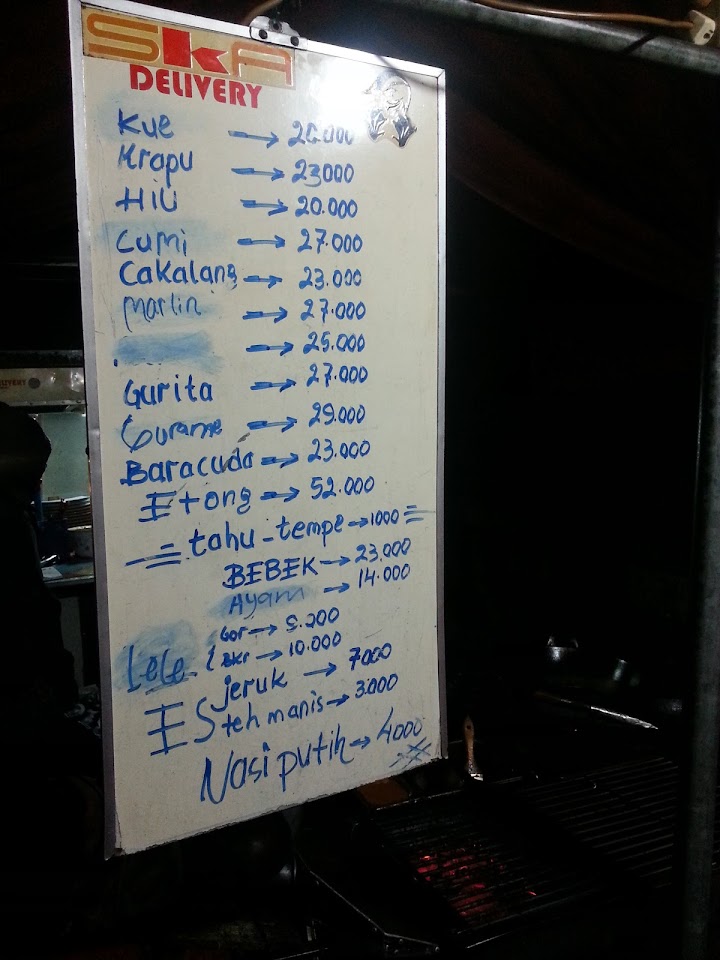 SKA
DELIVERY
Kue → 20.000
Krapu → 23000
HiU → 20.000
Cumi → 27.000
Cakalang → 23.000
Marlin → 27.000
→ 25.000
Gurita → 27.000
Gurame → 29.000
Baracuda → 23.000
Etong → 52.000
tahu-tempe → 1000
BEBEK → 23.000
Ayam → 14.000
Lele { Gor → 9.200
Bkr → 10.000
ES jeruk → 7000
teh manis → 3.000
Nasi putih → 4000